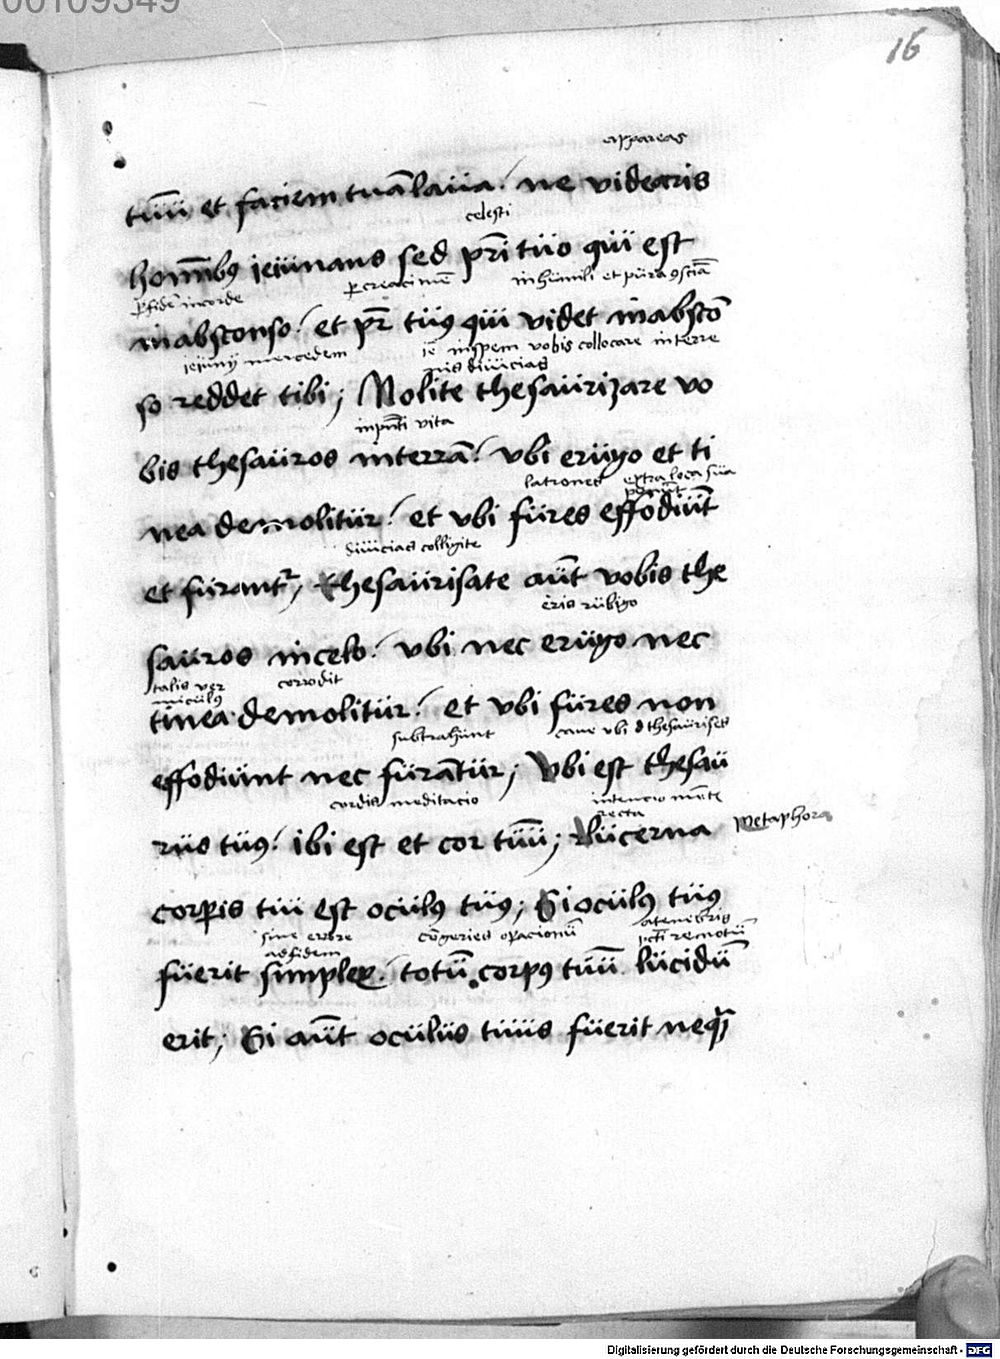 00109349
16
appareas
tuū et faciem tuā laua / ne videaris
celesti
hoīnibꝯ ieiunans sed pr̄i tuo qui est
ꝑ fidē in corde ꝑ creacionē in humili et pura ꝯsciā
in absconso / et pr̄ tuꝯ qui videt in abscō
ieiunij mercedem in spem vobis collocare in terre
nis diuicias
so reddet tibi ; Nolite thesaurizare vo
in pn̄ti vita
bis thesauros in terrā / vbi erugo et ti
latrones extra loca sua
nea demolitur / et vbi fures effodiūt
diuicias colligite
et furantr̄ ; thesaurisate aūt vobis the
eris rubigo
sauros in celo / vbi nec erugo nec
talis ver corrodit
miculꝯ
tinea demolitur / et vbi fures non
subtrahunt caue vbi thesaurises
effodiunt nec furātur ; Vbi est thesau
cordis meditacio intencio mentis
recta
rus tuꝯ / ibi est et cor tuū ; Lucerna metaphora
corꝑis tui est oculꝯ tuꝯ ; Si oculꝯ tuꝯ
sine errore cōgeries opacionū a tenebris
ad fidem pcti remotū
fuerit simplex / totū corpꝯ tuū lucidū
erit ; Si aūt oculus tuus fuerit neqȝ
Digitalisierung gefördert durch die Deutsche Forschungsgemeinschaft - DFG